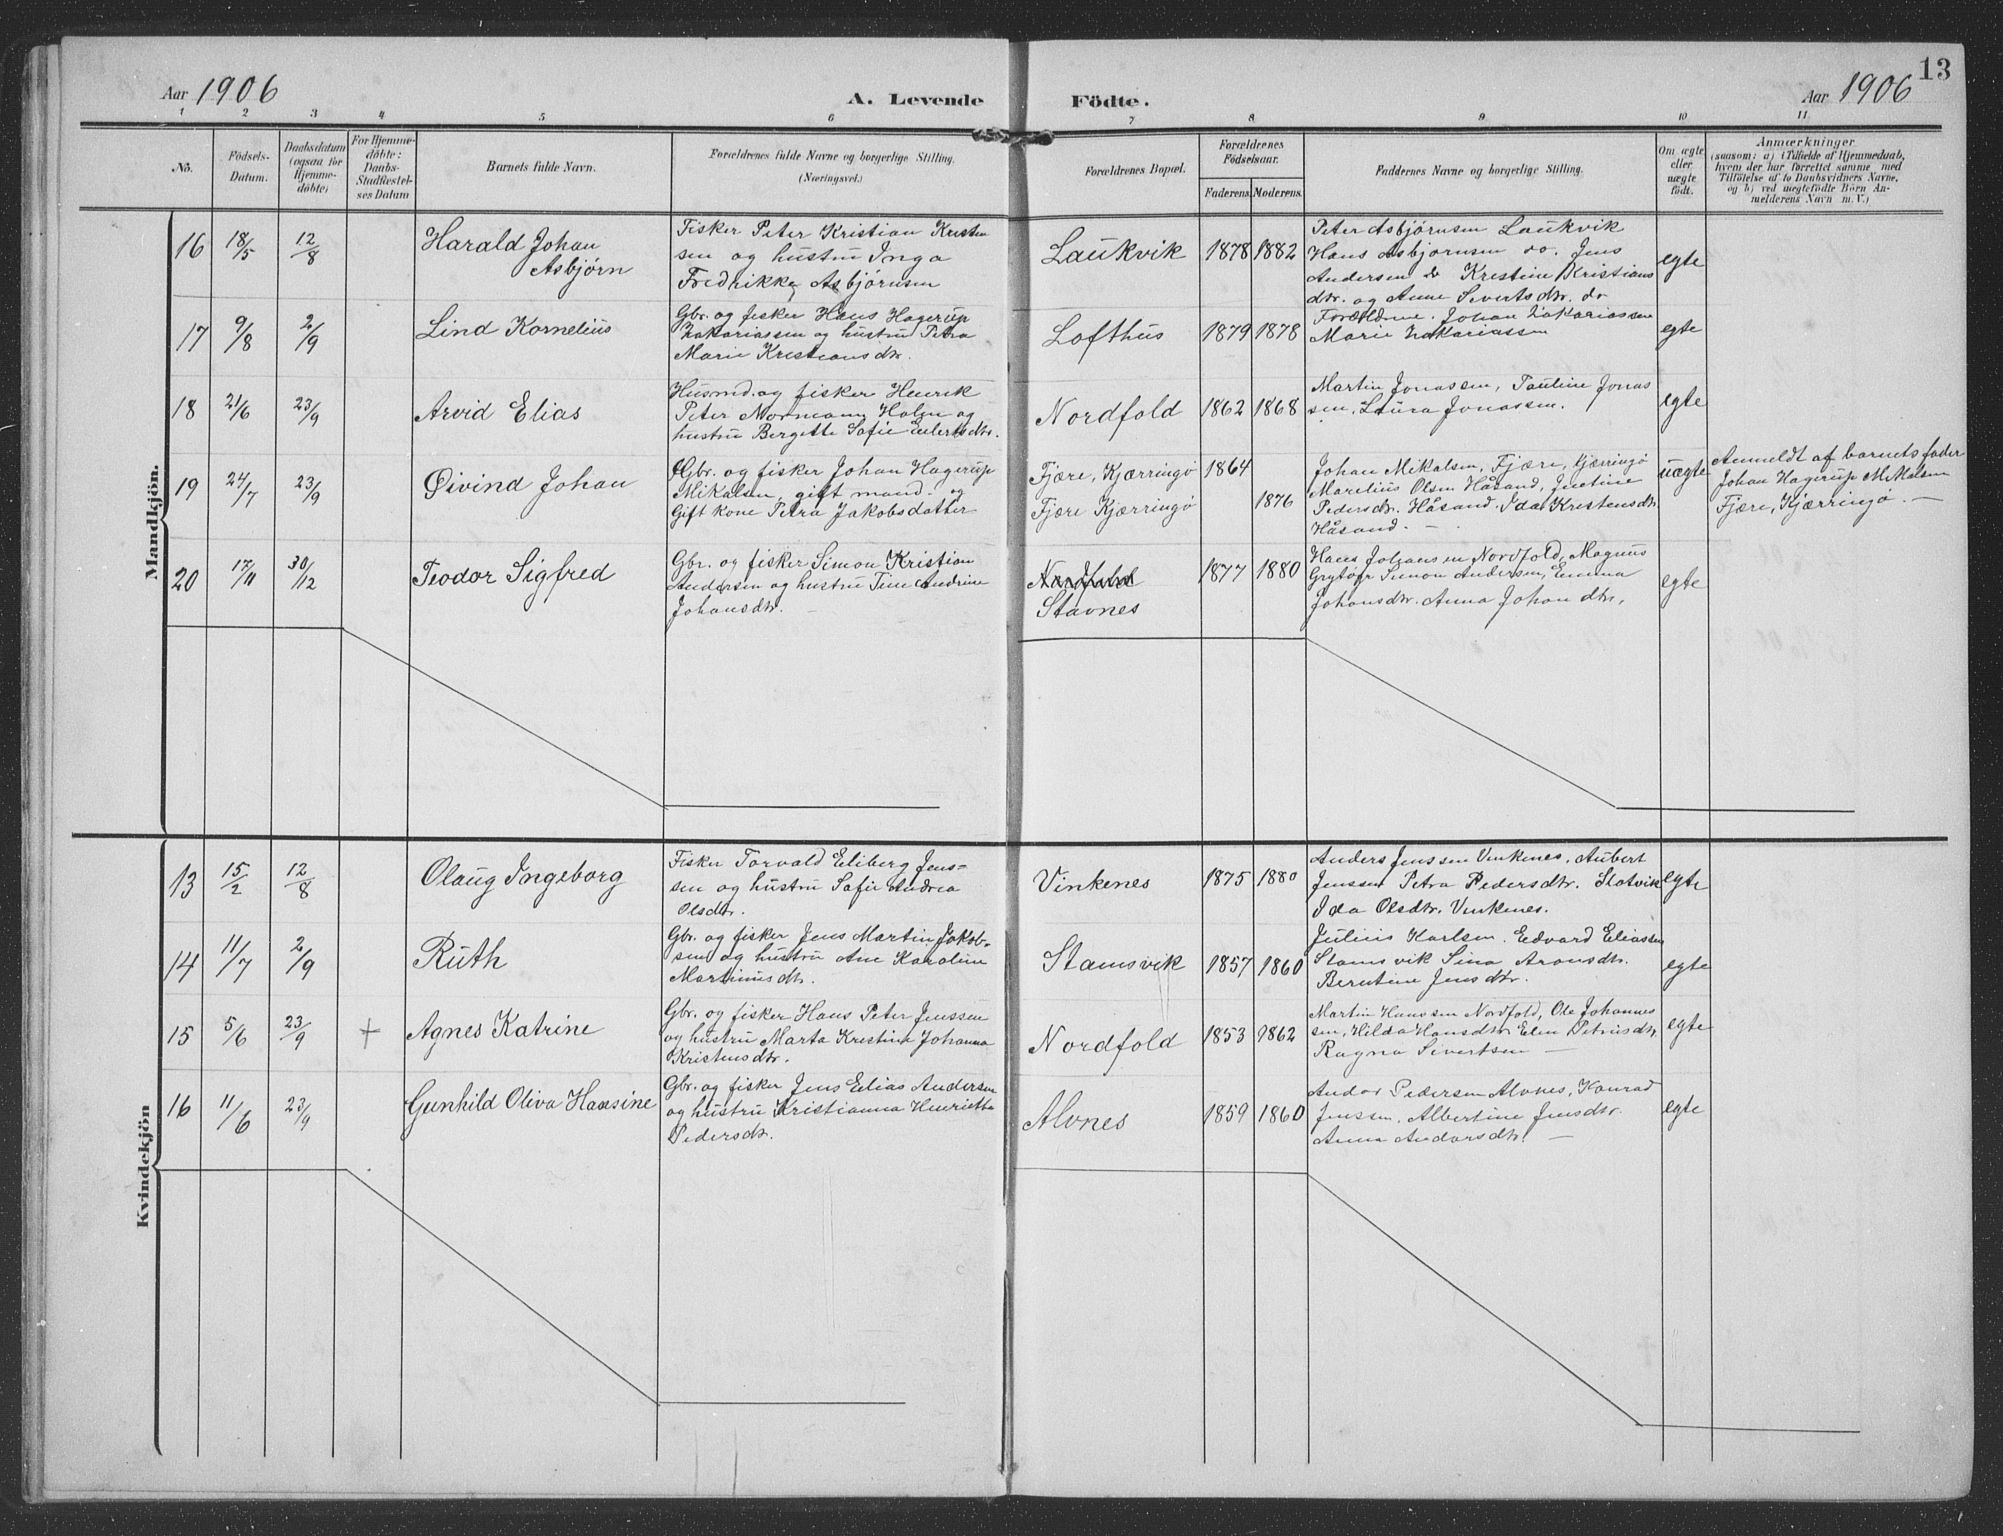 Aar 1906
A. Levende
Födte.
Aar 1906
13
1 2 3 4 5 6 7 8 9 10 11
No.
Födsels-
Datum.
Daabsdatum
(ogsaa for
Hjemme-
döbte)
For Hjemme-
döbte:
Daabs-
Stadfæstel-
ses Datum
Barnets fulde Navn.
Forældrenes fulde Navne og borgerlige Stilling.
(Næringsvei.)
Forældrenes Bopæl.
Forældrenes
Födselsaar.
Faderens.
Moderens.
Faddernes Navne og borgerlige Stilling.
Om ægte
eller
uægte
födt.
Anmærkninger
(saasom: a) i Tilfælde af Hjemmedaab,
hvem der har forrettet samme med
Tilföielse af to Daabsvidners Navne,
og b) ved uægtefödte Börn An-
melderens Navn m. V.)
Mandkjön.
16 18/5 12/8
Harald Johan
Asbjörn
Fisker Peter Kristian Kristen
sen og hustru Inga
Fredrikke Asbjörnsen
Laukvik
1878 1882
Peter Asbjörnsen Laukvik
Hans Asbjörnsen do. Jens
Andersen do Kristine Kristians
dtr. og Anne Sivertsdtr. do
egte
17 9/8 2/9
Lind Kornelius
Gbr. og fisker Hans Hagerup
Zakariassen og hustru Petra
Marie Kristiansdtr.
Lofthus
1879 1878
Forældrene. Johan Zakariassen
Marie Zakariassen
egte
18 21/6 23/9
Arvid Elias
Husmd. og fisker Henrik
Peter Normann Holm og
hustru Bergette Sofie Eilertsdtr.
Nordfold
1862 1868
Martin Jonassen, Pauline Jonas
sen, Laura Jonassen.
egte
19 24/7 23/9
Øivind Johan
Gbr. og fisker Johan Hagerup
Mikalsen, gift mand. og
Gift kone Petra Jakobsdatter
Fjære, Kjærringö
Fjære Kjærringö
1864
1876
Johan Mikalsen, Fjære, Kjærringö
Marelius Olsen Håsand, Justine
Pedersdtr. Håsand. Ida Kristensdtr.
Håsand. —
uægte
Anmeldt af barnets fader
Johan Hagerup Mikalsen
Fjære, Kjærringö. —
20 17/11 30/12
Teodor Sigfred
Gbr. og fisker Simon Kristian
Andersen og hustru Tine Andrine
Johansdtr. —
Nordfold
Stavnes
1877 1880
Hans Johansen Nordfold, Magnus
Grytöfr Simon Andersen, Emma
Johansdtr. Anna Johansdtr.
egte
Kvindekjön
13 15/2 12/8
Olaug Ingeborg
Fisker Torvald Eliberg Jens-
sen og hustru Sofie Andrea
Olsdtr.
Vinkenes
1875 1880
Anders Jenssen Vinkenes, Aubert
Jenssen Petra Pedersdtr. Slotvik
Ida Olsdtr. Vinkenes.
egte
14 11/7 2/9
Ruth
Gbr. og fisker Jens Martin Jakob-
sen og hustru Ane Karoline
Martinusdtr.
Stamsvik
1857 1860
Julius Karlsen. Edvard Eliassen
Stamsvik Sina Aronsdtr.
Berntine Jensdtr.
egte
15 5/6 23/9 +
Agnes Katrine
Gbr. og fisker Hans Peter Jenssen
og hustru Marta Kristine Johanna
Kristensdtr.
Nordfold
1853 1862
Martin Hanssen Nordfold, Ole Johannes
sen, Hilda Hansdtr. Elen Petrusdtr.
Ragna Sivertsen —
egte
16 11/6 23/9
Gunhild Oliva Hansine
Gbr. og fisker Jens Elias Andersen
og hustru Kristianna Henriette
Pedersdtr.
Alvnes
1859 1860
Andor Pedersen Alvnes, Konrad
Jenssen, Albertine Jensdtr.
Anna Andorsdtr. —
egte